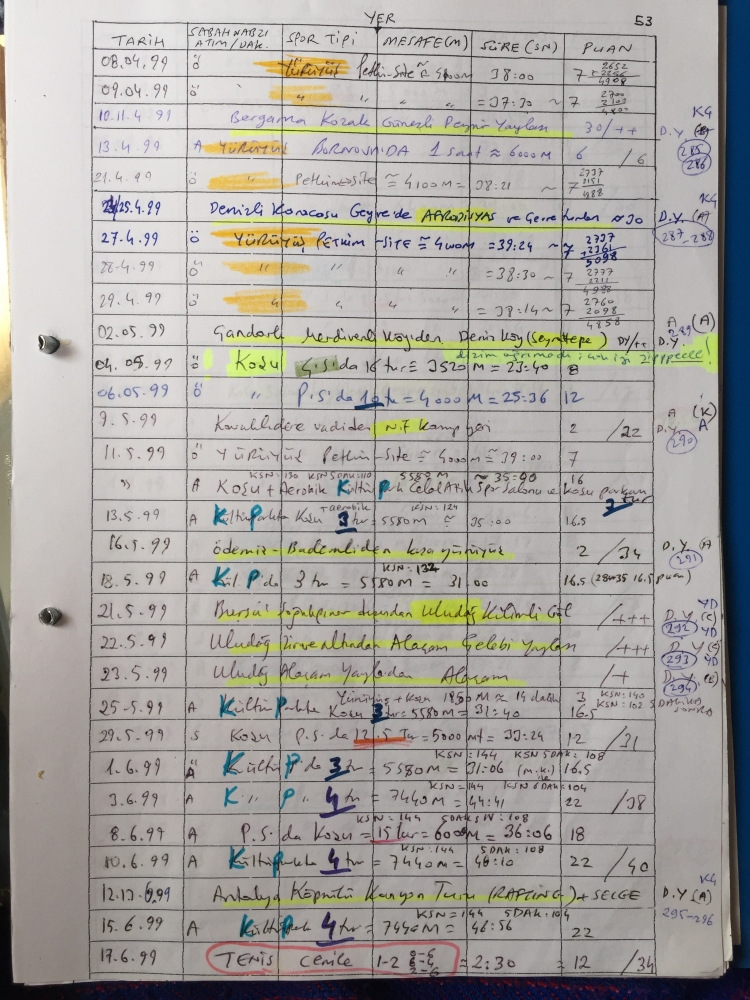 YER 53
TARİH SABAH NABZI ATIM/DAK. SPOR TİPİ MESAFE(M) SÜRE(SN) PUAN
08.04.99 Ö YÜRÜYÜŞ Petkim-Site ≅ 4000m 38:00 7 2652
4908
09.04.99 Ö " " " " = 37:30 ~ 7 2700
2100
4800
10.11.4.99 Bergama Kozak Güneşli Peynir Yaylası 30/++ D.Y KG
285
286
13.4.99 A YÜRÜYÜŞ BORNOVA'DA 1 saat ≈ 6000M 6 /6
21.4.99 Ö " Petkim-site ≅ 4100m = 38:21 ~ 7 2737
2151
4888
25.4.99 Denizli Karacasu Geyre'de AFRODİSYAS ve ≈30 D.Y (A) KG
287-288
27.4.99 Ö YÜRÜYÜŞ PETKİM-SİTE ≅ 4000m = 39:24 ~ 7 2737
+2361
5098
28.4.99 Ö " " " " = 38:30 ~ 7 2777
2211
4988
29.4.99 Ö " " " = 38:14 ~ 7 2760
2098
4858
02.05.99 Çandarlı Merdivenli Köyiden Deniz Köy (Seyrektepe) DY/++ D.Y. A (A)
289
04.05.99 Ö KOŞU Ş.S'da 16 tur ≅ 3520M = 23:40 8
06.05.99 Ö " P.S'da 10 tur = 4000M = 25:36 12
9.5.99 Kavaklıdere vadiden Nif Kampyeri 2 /22 D.Y A (K)
A
290
11.5.99 Ö YÜRÜYÜŞ Petkim-Site ≅ 4000m ≅ 39:00 7
" A KSN=130 KSN5DAK=110 5580M ≅ 35:00 16
KOŞU + Aerobik Kültür Park Celal Atik Spor Salonu ve koşu parkuru
3 tur
13.5.99 A Kültür Parkta Koşu + aerobik 3 tur = 5580M ≅ 35:00 16.5
KSN:124
16.5.99 Ödemiş-Bademli'den kısa yürüyüş 2 /34 D.Y. (A
291
18.5.99 A Kül P'da 3 tur = 5580M = 31.00 16.5
KSN: 132
21.5.99 Bursa Uludağ Kilimli Göl /+++ D.Y (C) YD
292
22.5.99 Uludağ zirve altından Alaçam Çelebi Yaylası /+++ D.Y (C) YD
293
23.5.99 Uludağ Alaçam Yaylıdan Alaçam /+ D.Y (C) YD
294
25-5.99 A Yürüyüş + Koşu 1850M ≈ 14 dakika 3 KSN:140
Kültür Parkta Koşu 3 tur = 5580M = 31:40 16.5 KSN:102 5 DAKİKA SONRA
29.5.99 S KOŞU P.S.da 12.5 Tur = 5000mt = 33:24 12 /31
KSN=144 KSN5DAK:108
1.6.99 Ä Kültür P'da 3 tur = 5580M = 31:06 (m.k.) 16.5
KSN=144 KSN5DAK:104
3.6.99 A K " P " 4 tur = 7440M = 44:41 22 /38
KSN=144 5DAKSN:108
8.6.99 A P.S'da Koşu = 15 tur = 6000M = 36:06 18
KSN:144 5DAK:108
10.6.99 A Kültür Parkta 4 tur = 7440M = 46:10 22 /40
12.13.6.99 Antalya Köprülü Kanyon Turu (RAFTİNG) + SELGE D.Y (A) KG
295-296
KSN=144 5DAK:104
15.6.99 A Kültür P 4 tur = 7440M = 46:56 22
17.6.99 TENİS Cemile 1-2 = 2:30 = 12 /34